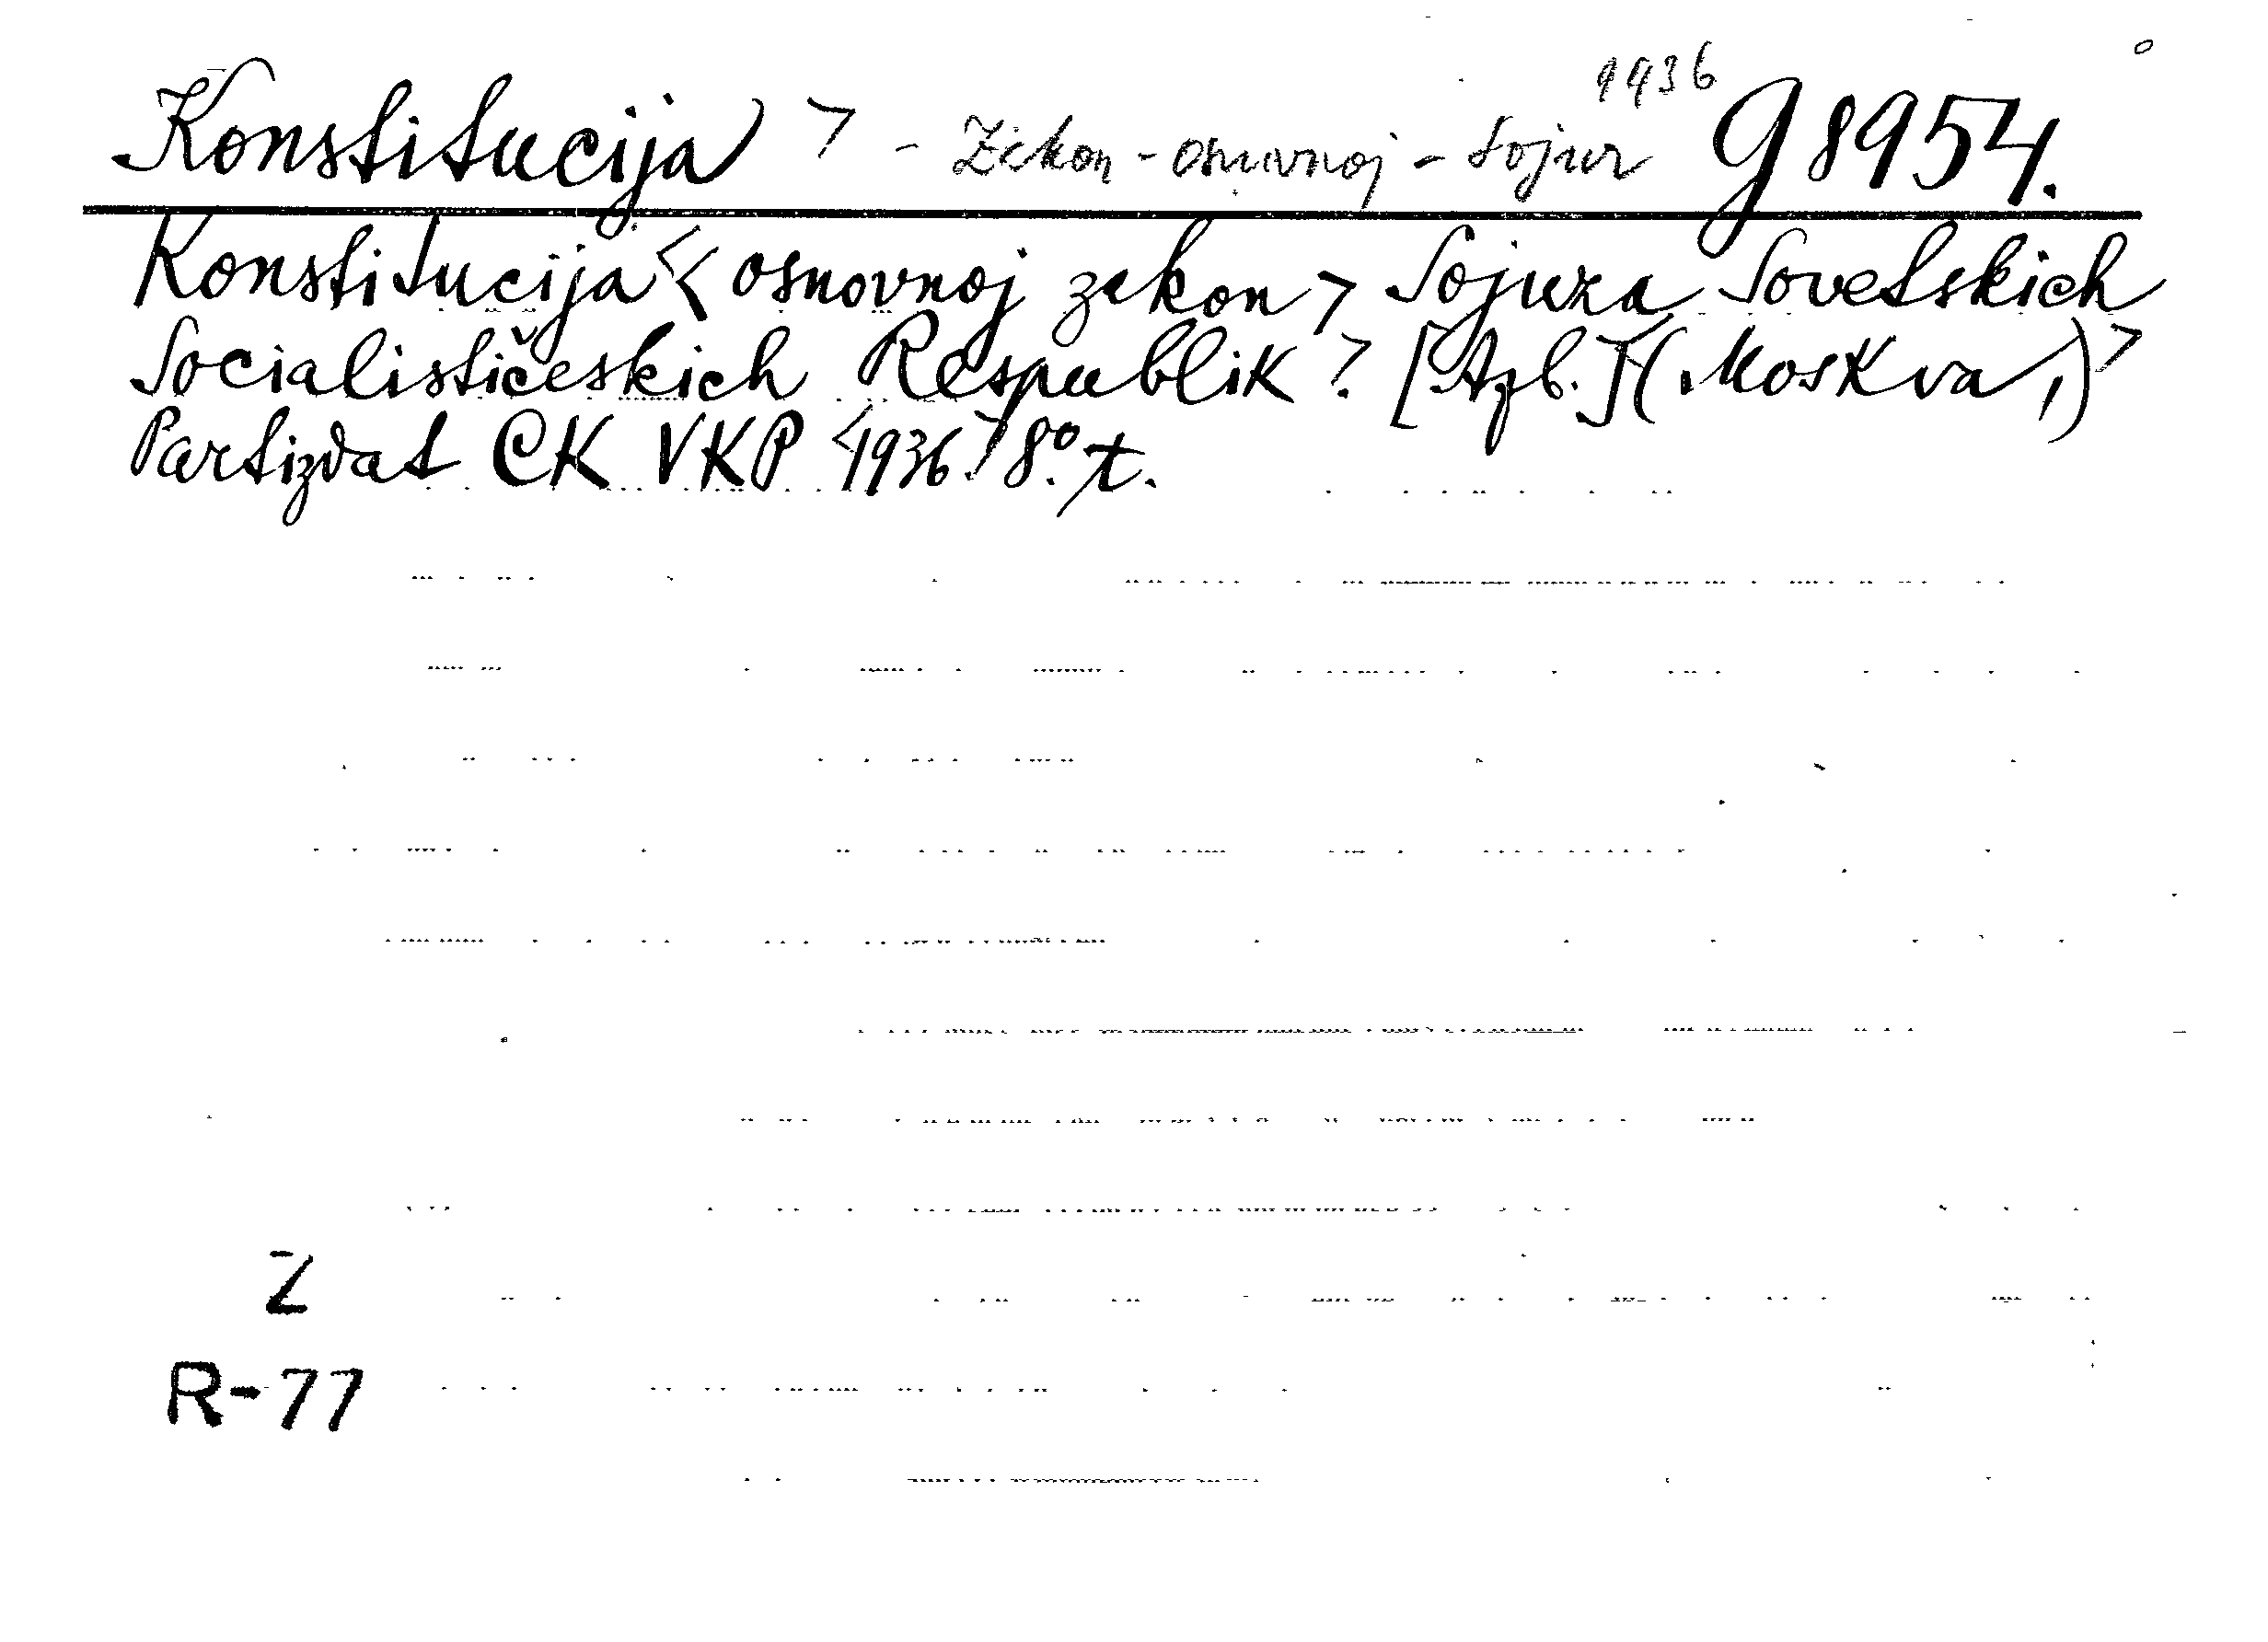 1936
Konstitucija > - Zakon - osnovnoj - Sojuz G 8954.
Konstitucija < osnovnoj zakon > Sojuza Sovetskich
Socialističeskich Respublik > [Azb.] < (Moskva,) >
Partizdat CK VKP <1936.> 8°. t.
Z
R-77